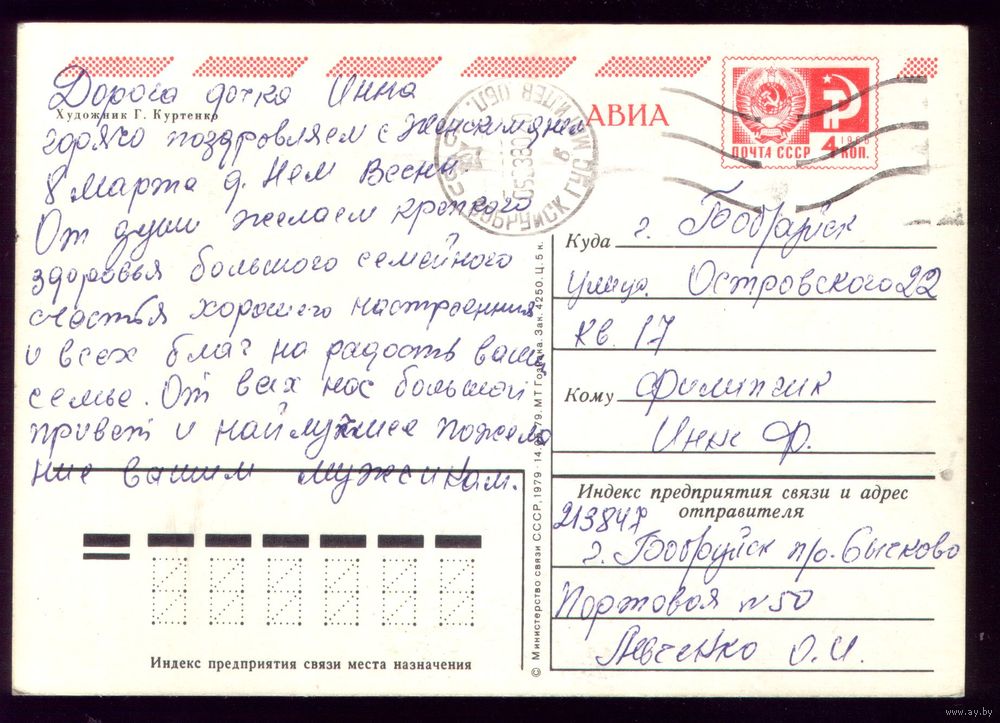 Дорога дочка Инна
Художник Г. Куртенко
горячо поздровляем с Женским днем
8 Марта д. Нем Весны
От души желаем крепкого
здоровья большого семейного
счастья хорошего настроенния
и всех благ на радость ваши
семье. От всех нас большой
привет и найлучшее пожела
ние вашим мужсикам.
АВИА
ПОЧТА СССР
4 КОП.
1966
БОБРУЙСК
Куда г. Бобруйск
улица Островского 22
кв. 17
Кому Филипчик
Инне Ф.
Индекс предприятия связи и адрес отправителя
213847
г. Бобруйск п/о. Сычково
Портовая №50
Левченко О. И.
Индекс предприятия связи места назначения
© Министерство связи СССР, 1979
МТ Гознака. Зак. 4250. Ц. 5 к.
www.ay.by